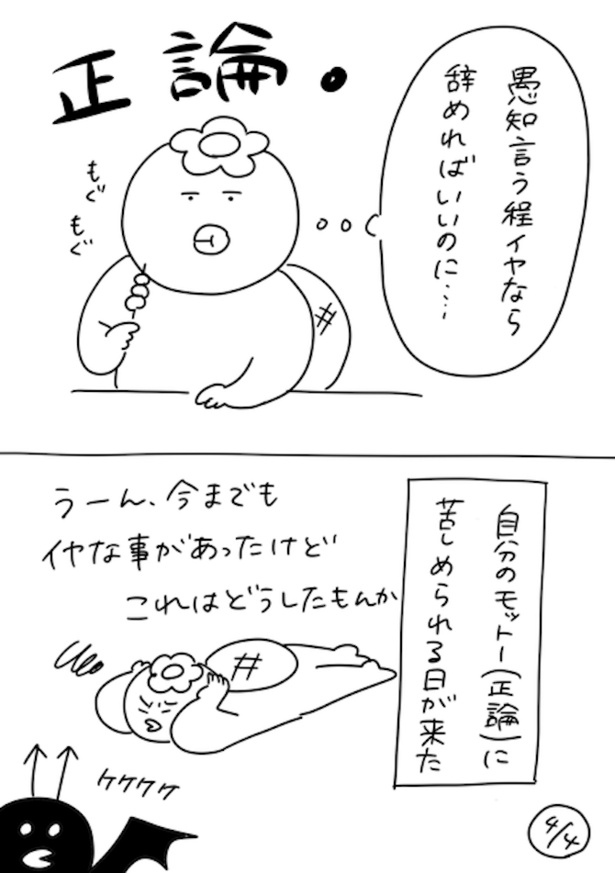 正論。
愚知言う程イヤなら
辞めればいいのに…
もぐ
もぐ
自分のモットー(正論)に
苦しめられる日が来た
うーん、今までも
イヤな事があったけど
これはどうしたもんか
ケケケケ
4/4